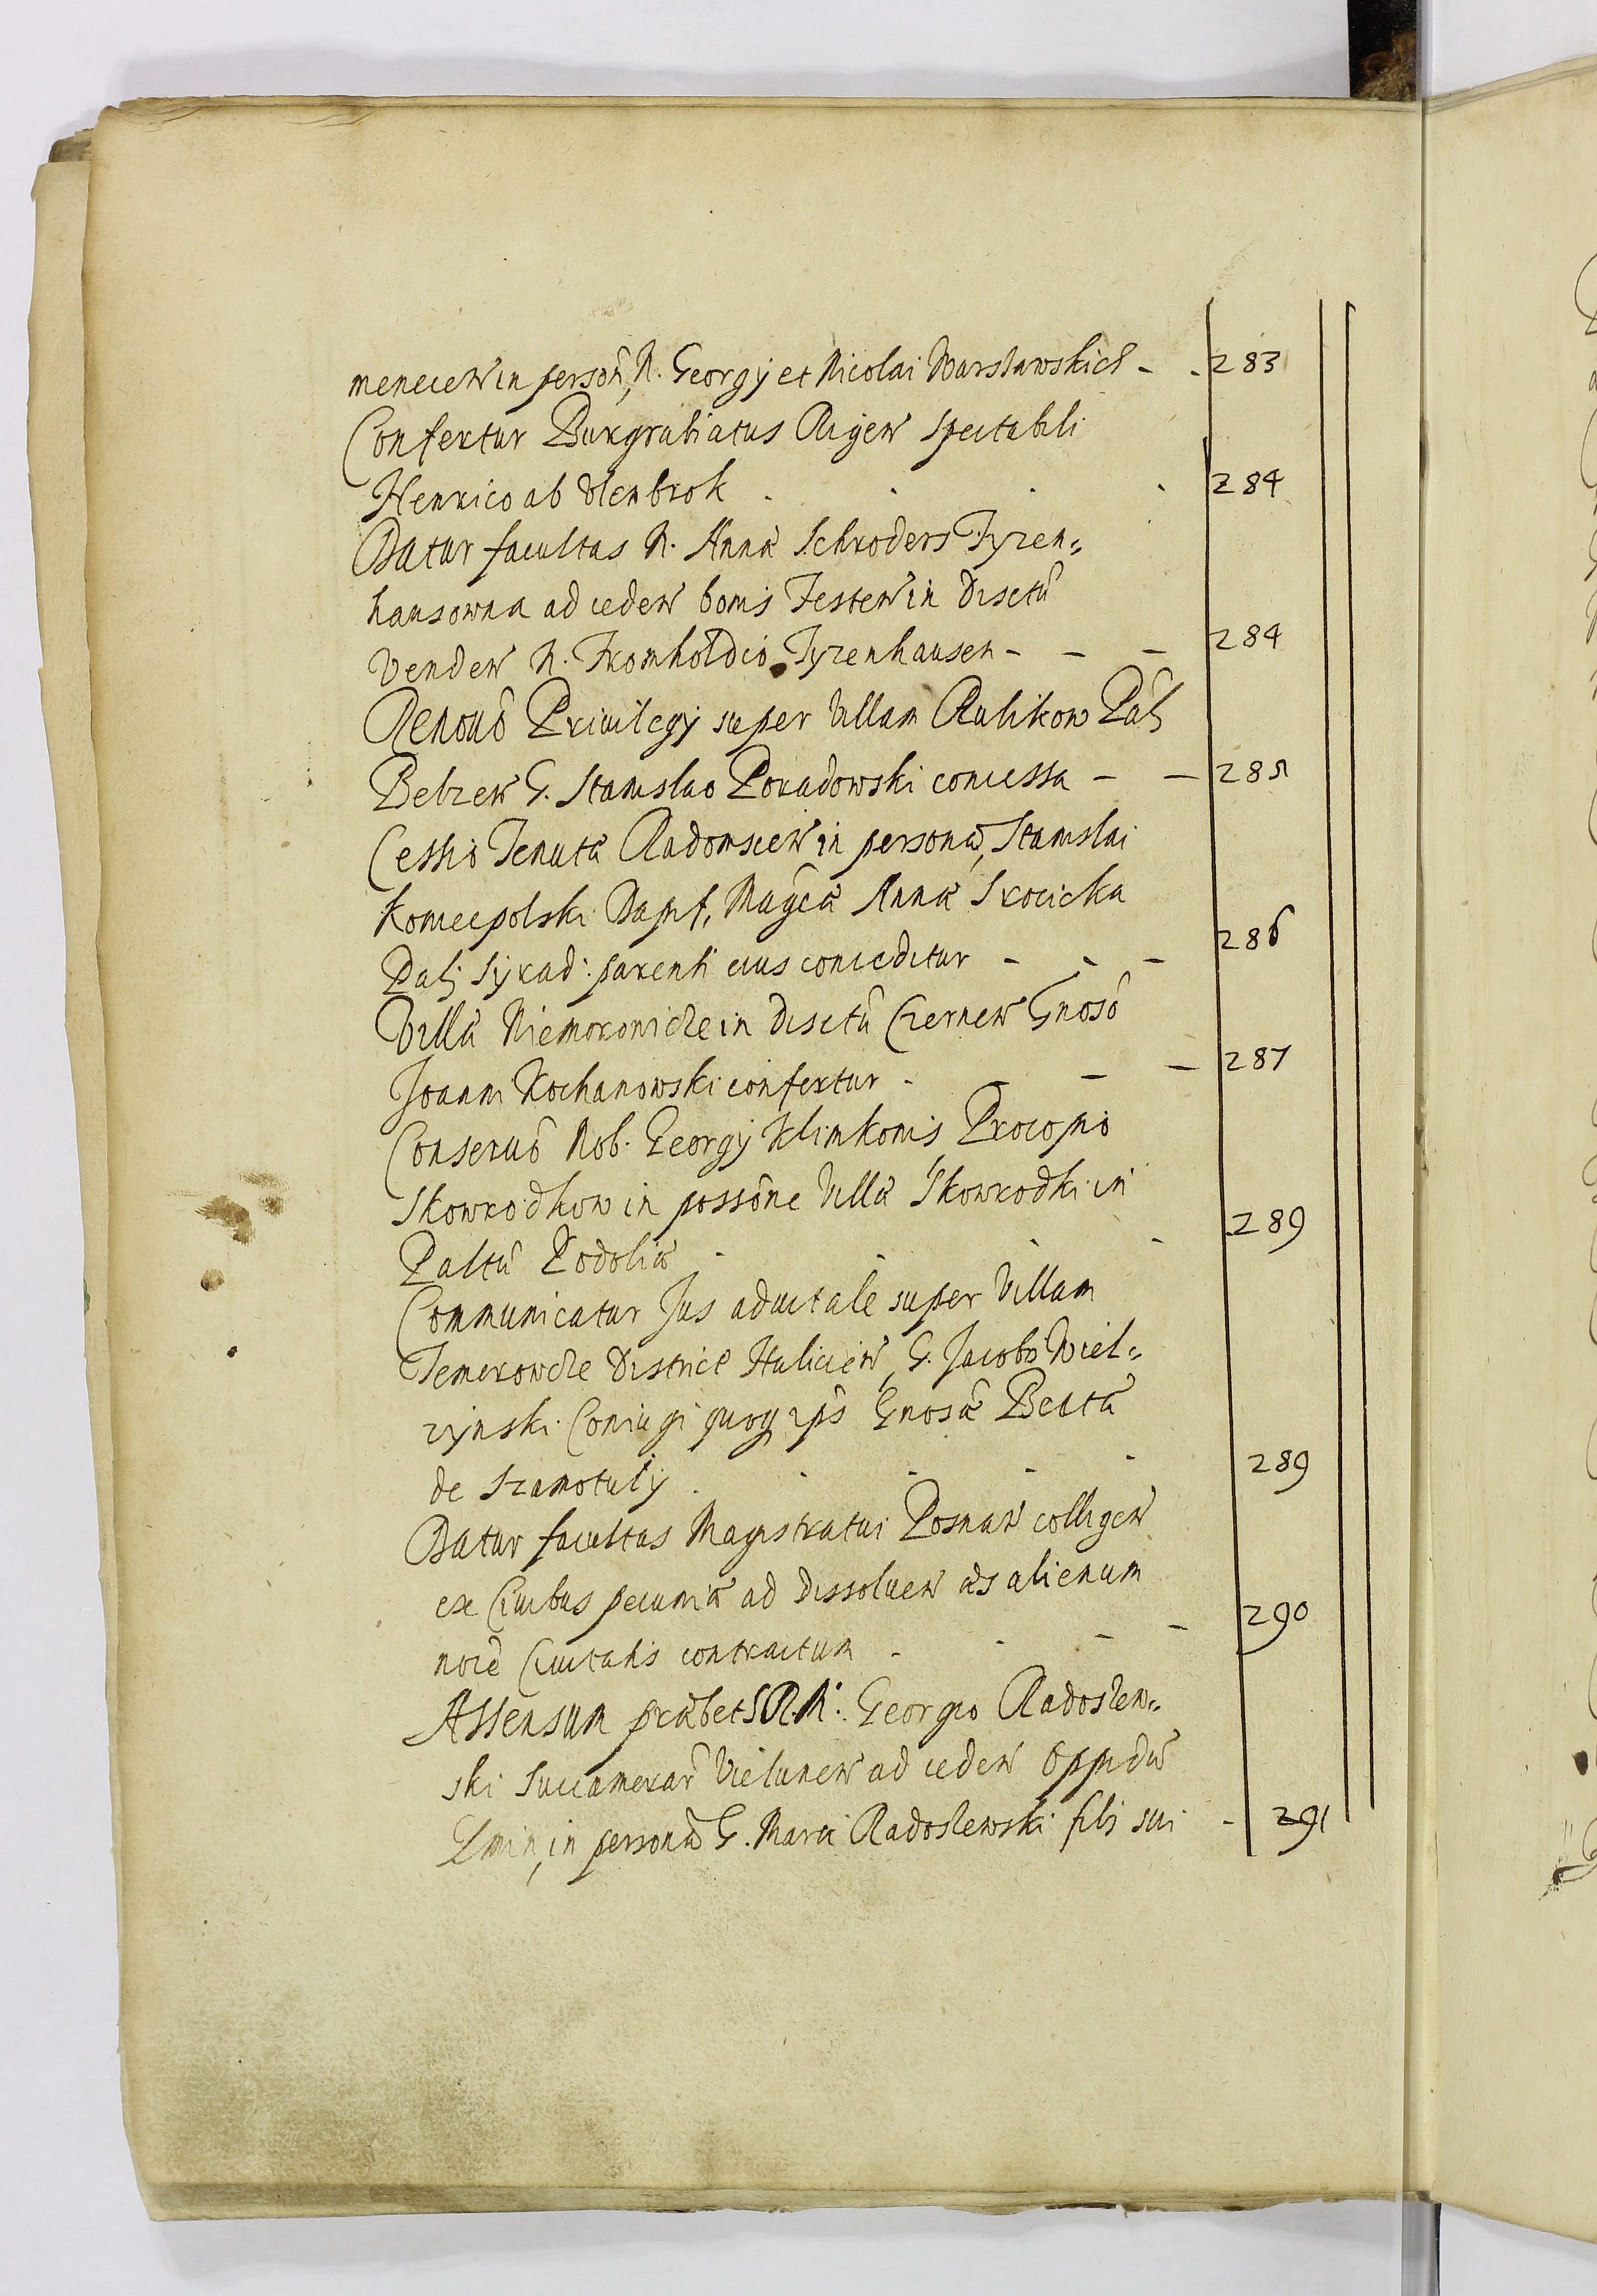 menecen̄ in person̄, N. Georgÿ et Nicolai Warsławskich - - 283
Confertur Burgrabiatus Rigen̄ spectabili
Henrico ab Vlenbrok . . . . 284
Datur facultas N. Annæ Schroders Tyzen=
hausowna ad ceden̄ bonis Festen̄ in Disctu͂
Venden̄ N. Fromholdio Tyzenhausen - - - 284
Renouõ Priuilegÿ super Villam Rulikow Palj
Belzen̄ G. Stanislao Poradowski concessa - - 285
Cessio Tenutæ Radomscen̄ in persona͂, Stanislai
Koniecpolski Dapif, Mag͂cæ Annæ Srocicka
Palj Syrad: parenti eius conceditur - - - 286
Villa Niemoronicze in Disctu͂ Czernen̄ G͂noso͂
Joanni Kochanowski confertur - - - 287
Conseruõ Nob. Georgÿ Klimkonis Procopio
Skowrodkow in possõne Villæ Skowrodki in
Paltu͂ Podoliæ . . . . 289
Communicatur Jus aduitale super Villam
Temerowcze District Halicien̄, G. Jacobo Wiel=
zynski Coniugi quoq ip͂s G͂nosæ Beatæ
de Szamotuly . . . . . 289
Datur facultas Magistratui Posnan̄ colligen̄
ex Ciuibus pecunia͂ ad dissoluen̄ æs alienum
no͂ie Ciuitatis contractum . - - - 290
Assensum præbet S R. M: Georgio Radoszew=
ski Succamerar͂ Vielunen̄ ad ceden̄ Oppidu͂
Lmin, in persona͂ G. Marci Radoszewski filÿ sui - 291